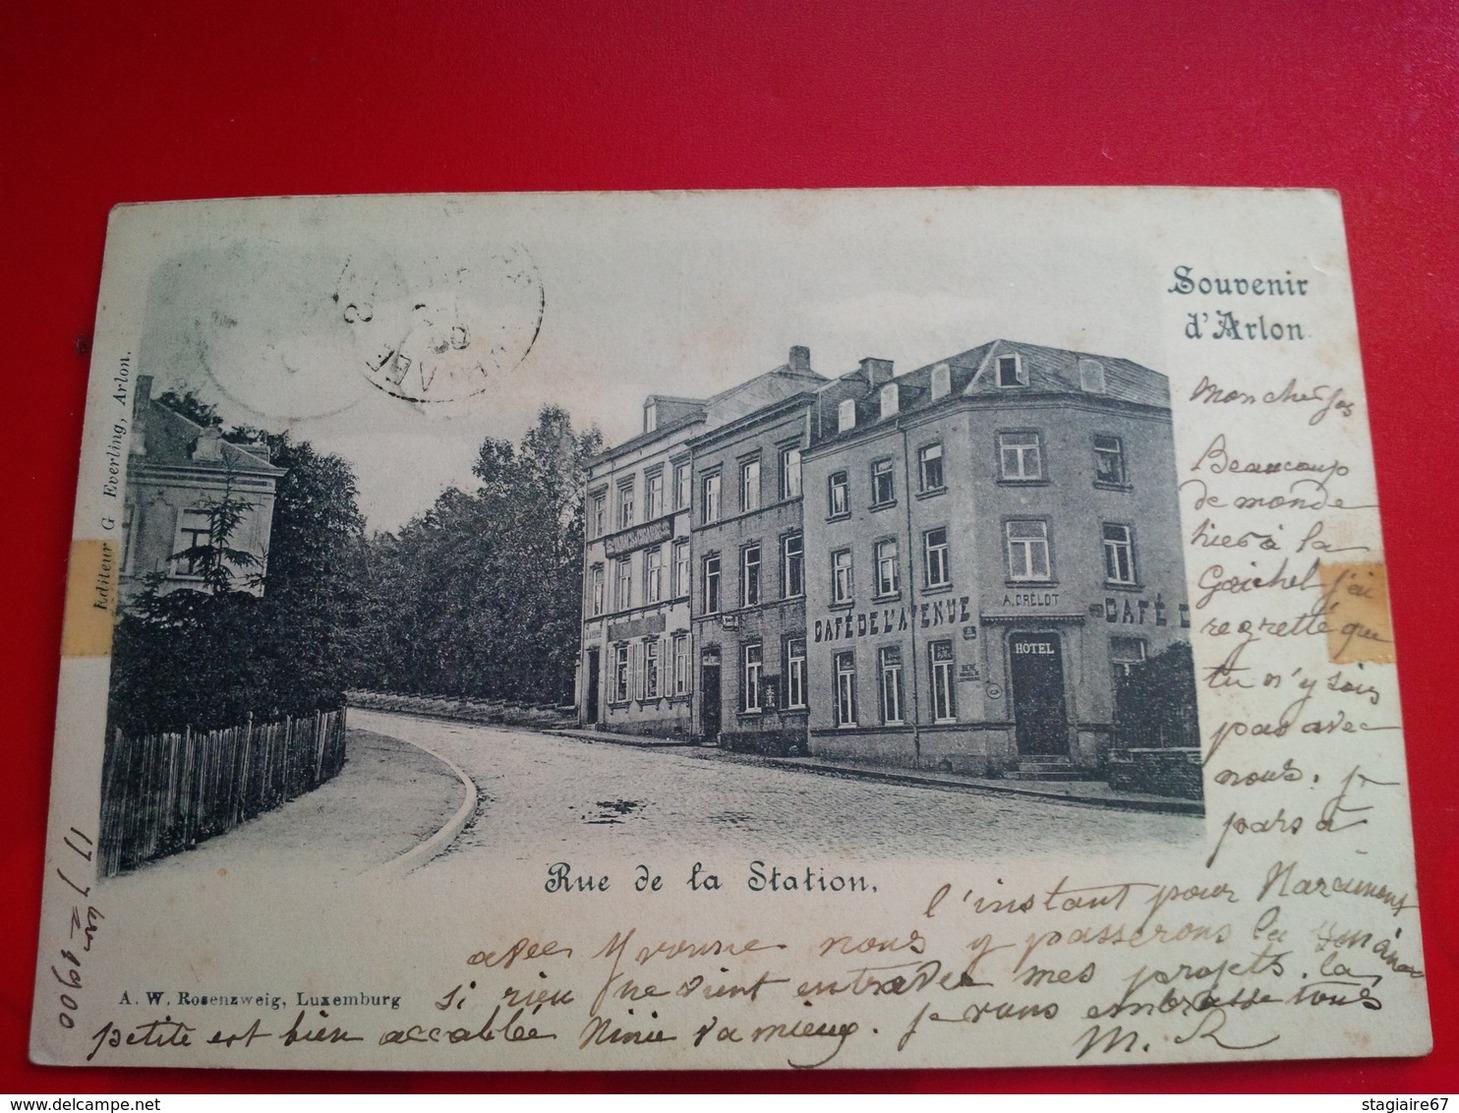 Souvenir
d'Arlon.
Editeur G Everling, Arlon.
Mon cher
Beaucoup
de monde
hier à la
j'ai
regretté que
tu n'y sois
pas avec
nous. je
pars à
l'instant pour
avec Yvonne nous y passerons la
si rien ne vient entraver mes projets. la
petite est bien accablée Ninie va mieux. je vous embrasse tous
M. R
17 7bre 1900
CAFÉ DE L'AVENUE
A. DRELOT
CAFÉ D
HÔTEL
Rue de la Station.
A. W. Rosenzweig, Luxemburg
delcampe.net
stagiaire67